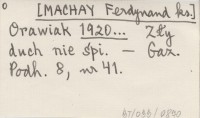 [MACHAY Ferdynand ks.]
Orawiak 1920... Zły
duch nie śpi. — Gaz.
Podh. 8, nr 41.